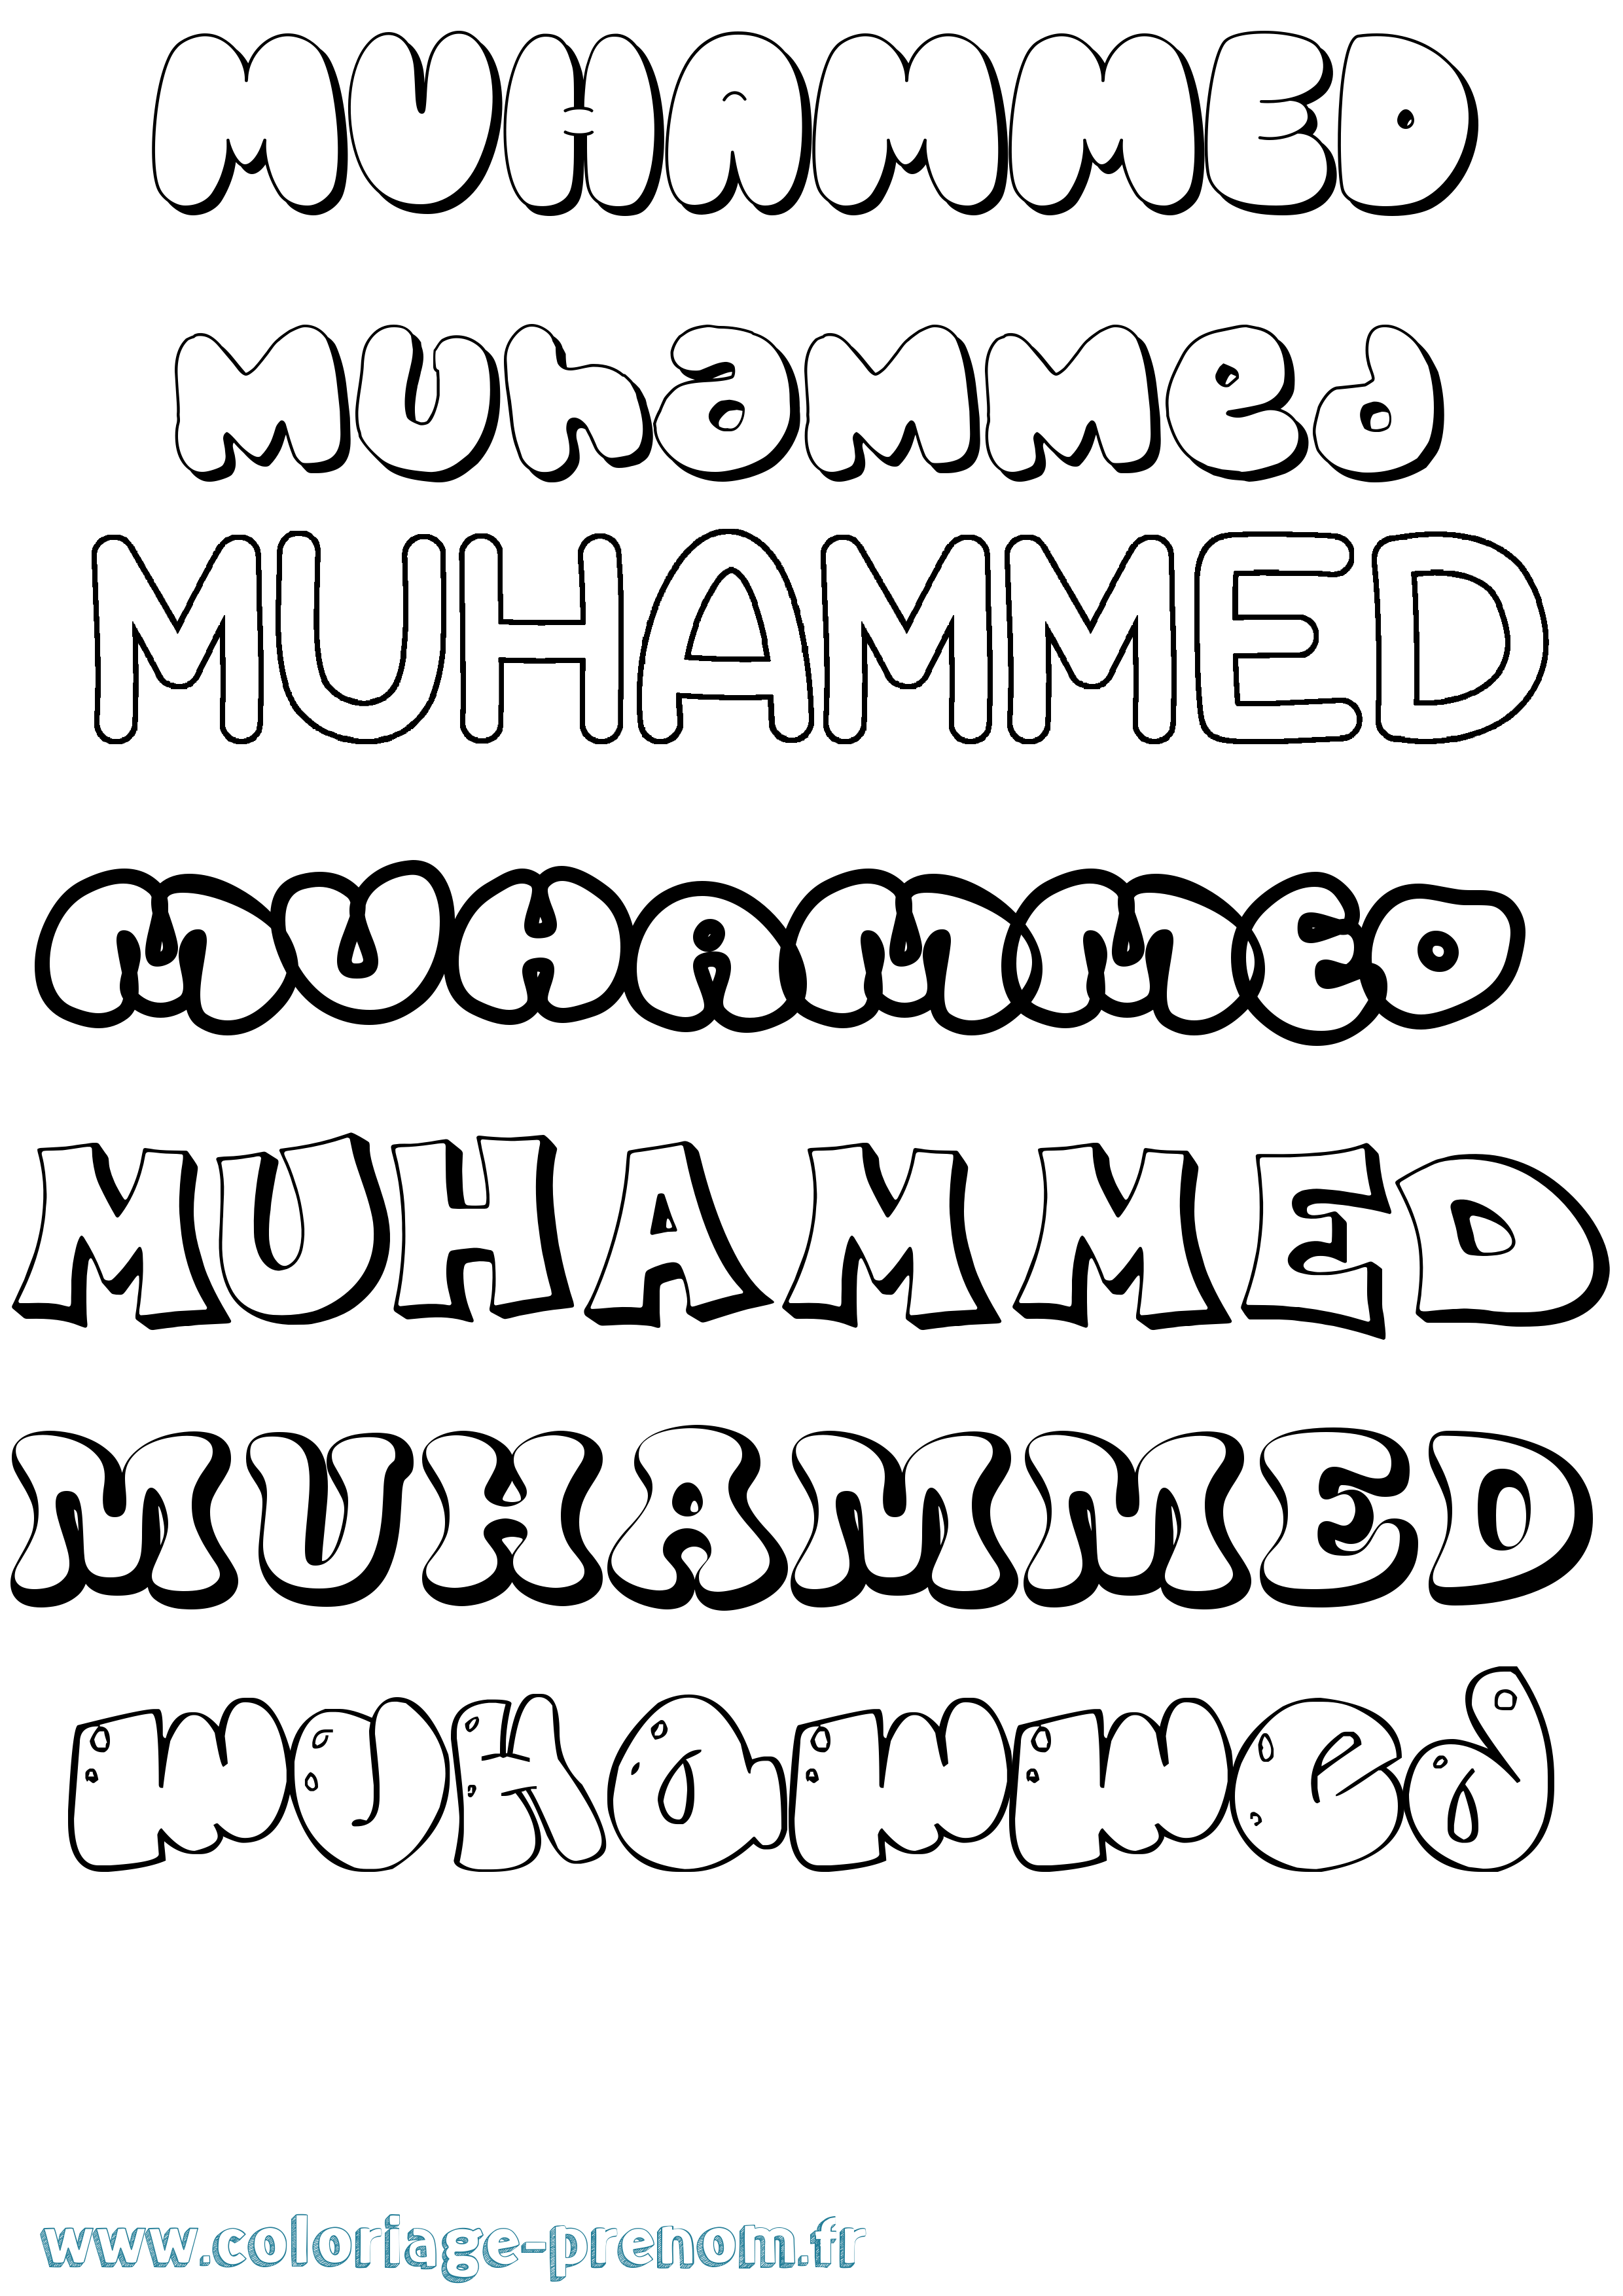 MUHAMMED
Muhammed
MUHAMMED
MUHAMMED
MUHAMMED
MUHAMMED
muhammed
www.coloriage-prenom.fr